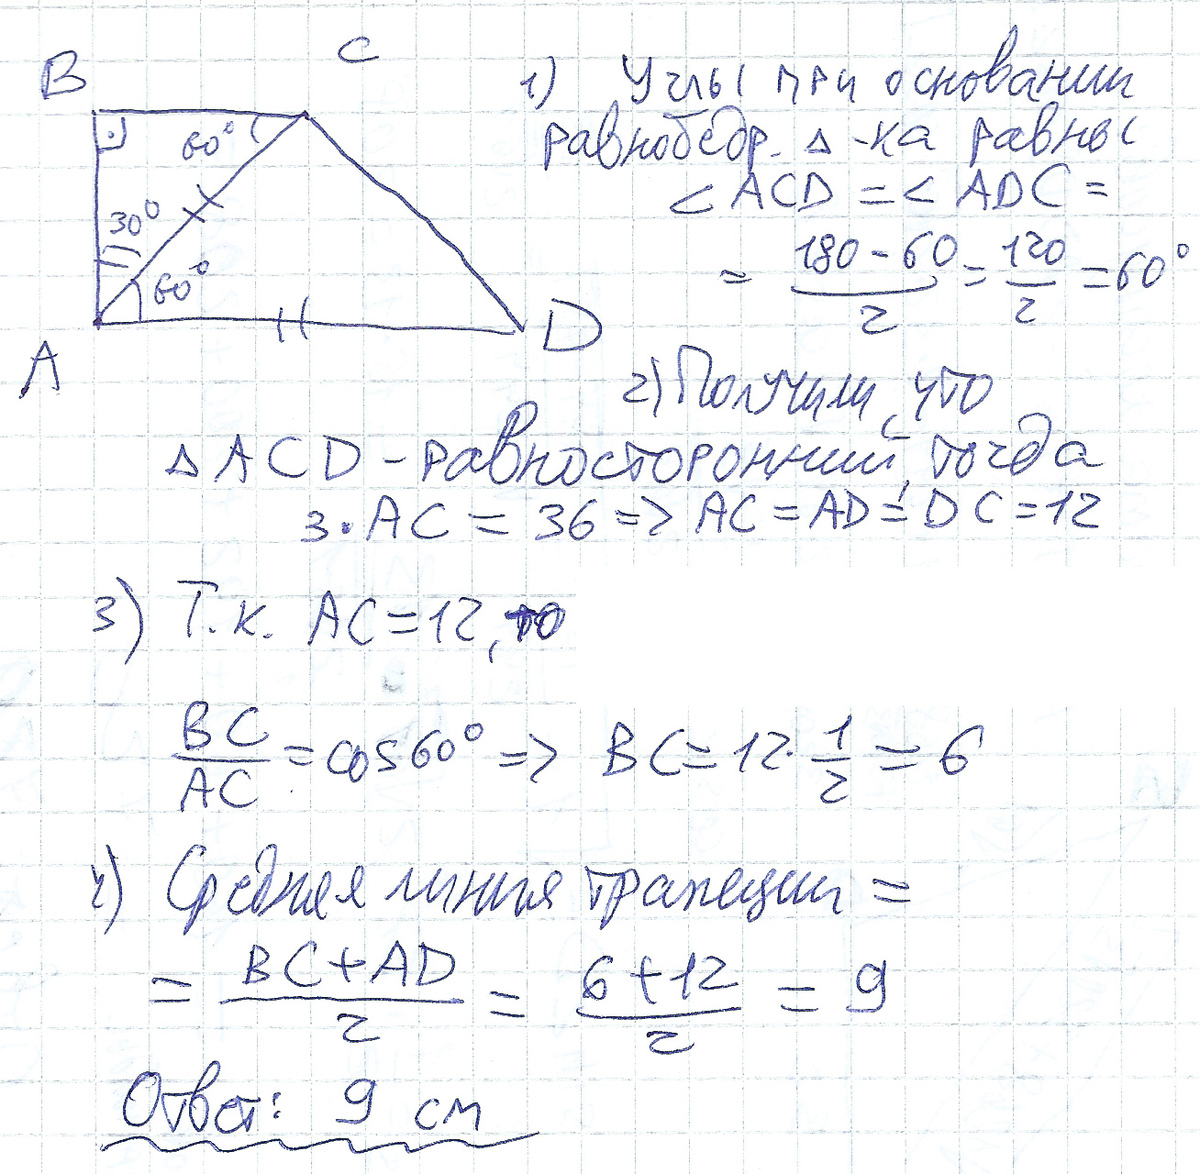 B
C
60°
30°
60°
A
D
1) Углы при основании
равнобедр. Δ-ка равны
< ACD = < ADC =
= (180 - 60)/2 = 120/2 = 60°
2) Получили, что
Δ ACD - равносторонний, тогда
3 · AC = 36 => AC = AD = DC = 12
3) Т.к. AC = 12, то
BC/AC = cos 60° => BC = 12 · 1/2 = 6
4) Средняя линия трапеции =
= (BC + AD)/2 = (6 + 12)/2 = 9
Ответ: 9 см